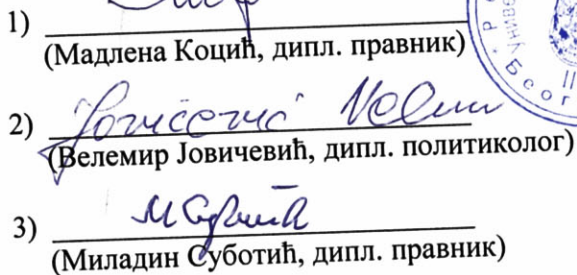 1)
(Мадлена Коцић, дипл. правник)
2) Jovičević
(Велемир Јовичевић, дипл. политиколог)
3)
(Миладин Суботић, дипл. правник)